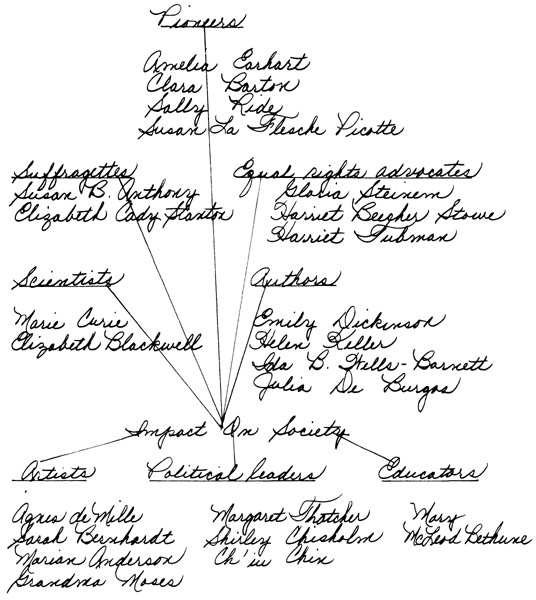 Pioneers
Amelia Earhart
Clara Barton
Sally Ride
Susan La Flesche Picotte
Suffragettes
Susan B. Anthony
Elizabeth Cady Stanton
Equal rights advocates
Gloria Steinem
Harriet Beecher Stowe
Harriet Tubman
Scientists
Marie Curie
Elizabeth Blackwell
Authors
Emily Dickinson
Helen Keller
Ida B. Wells-Barnett
Julia De Burgos
Impact On Society
Artists
Agnes de Mille
Sarah Bernhardt
Marian Anderson
Grandma Moses
Political leaders
Margaret Thatcher
Shirley Chisholm
Ch'iu Chin
Educators
Mary
McLeod Bethune